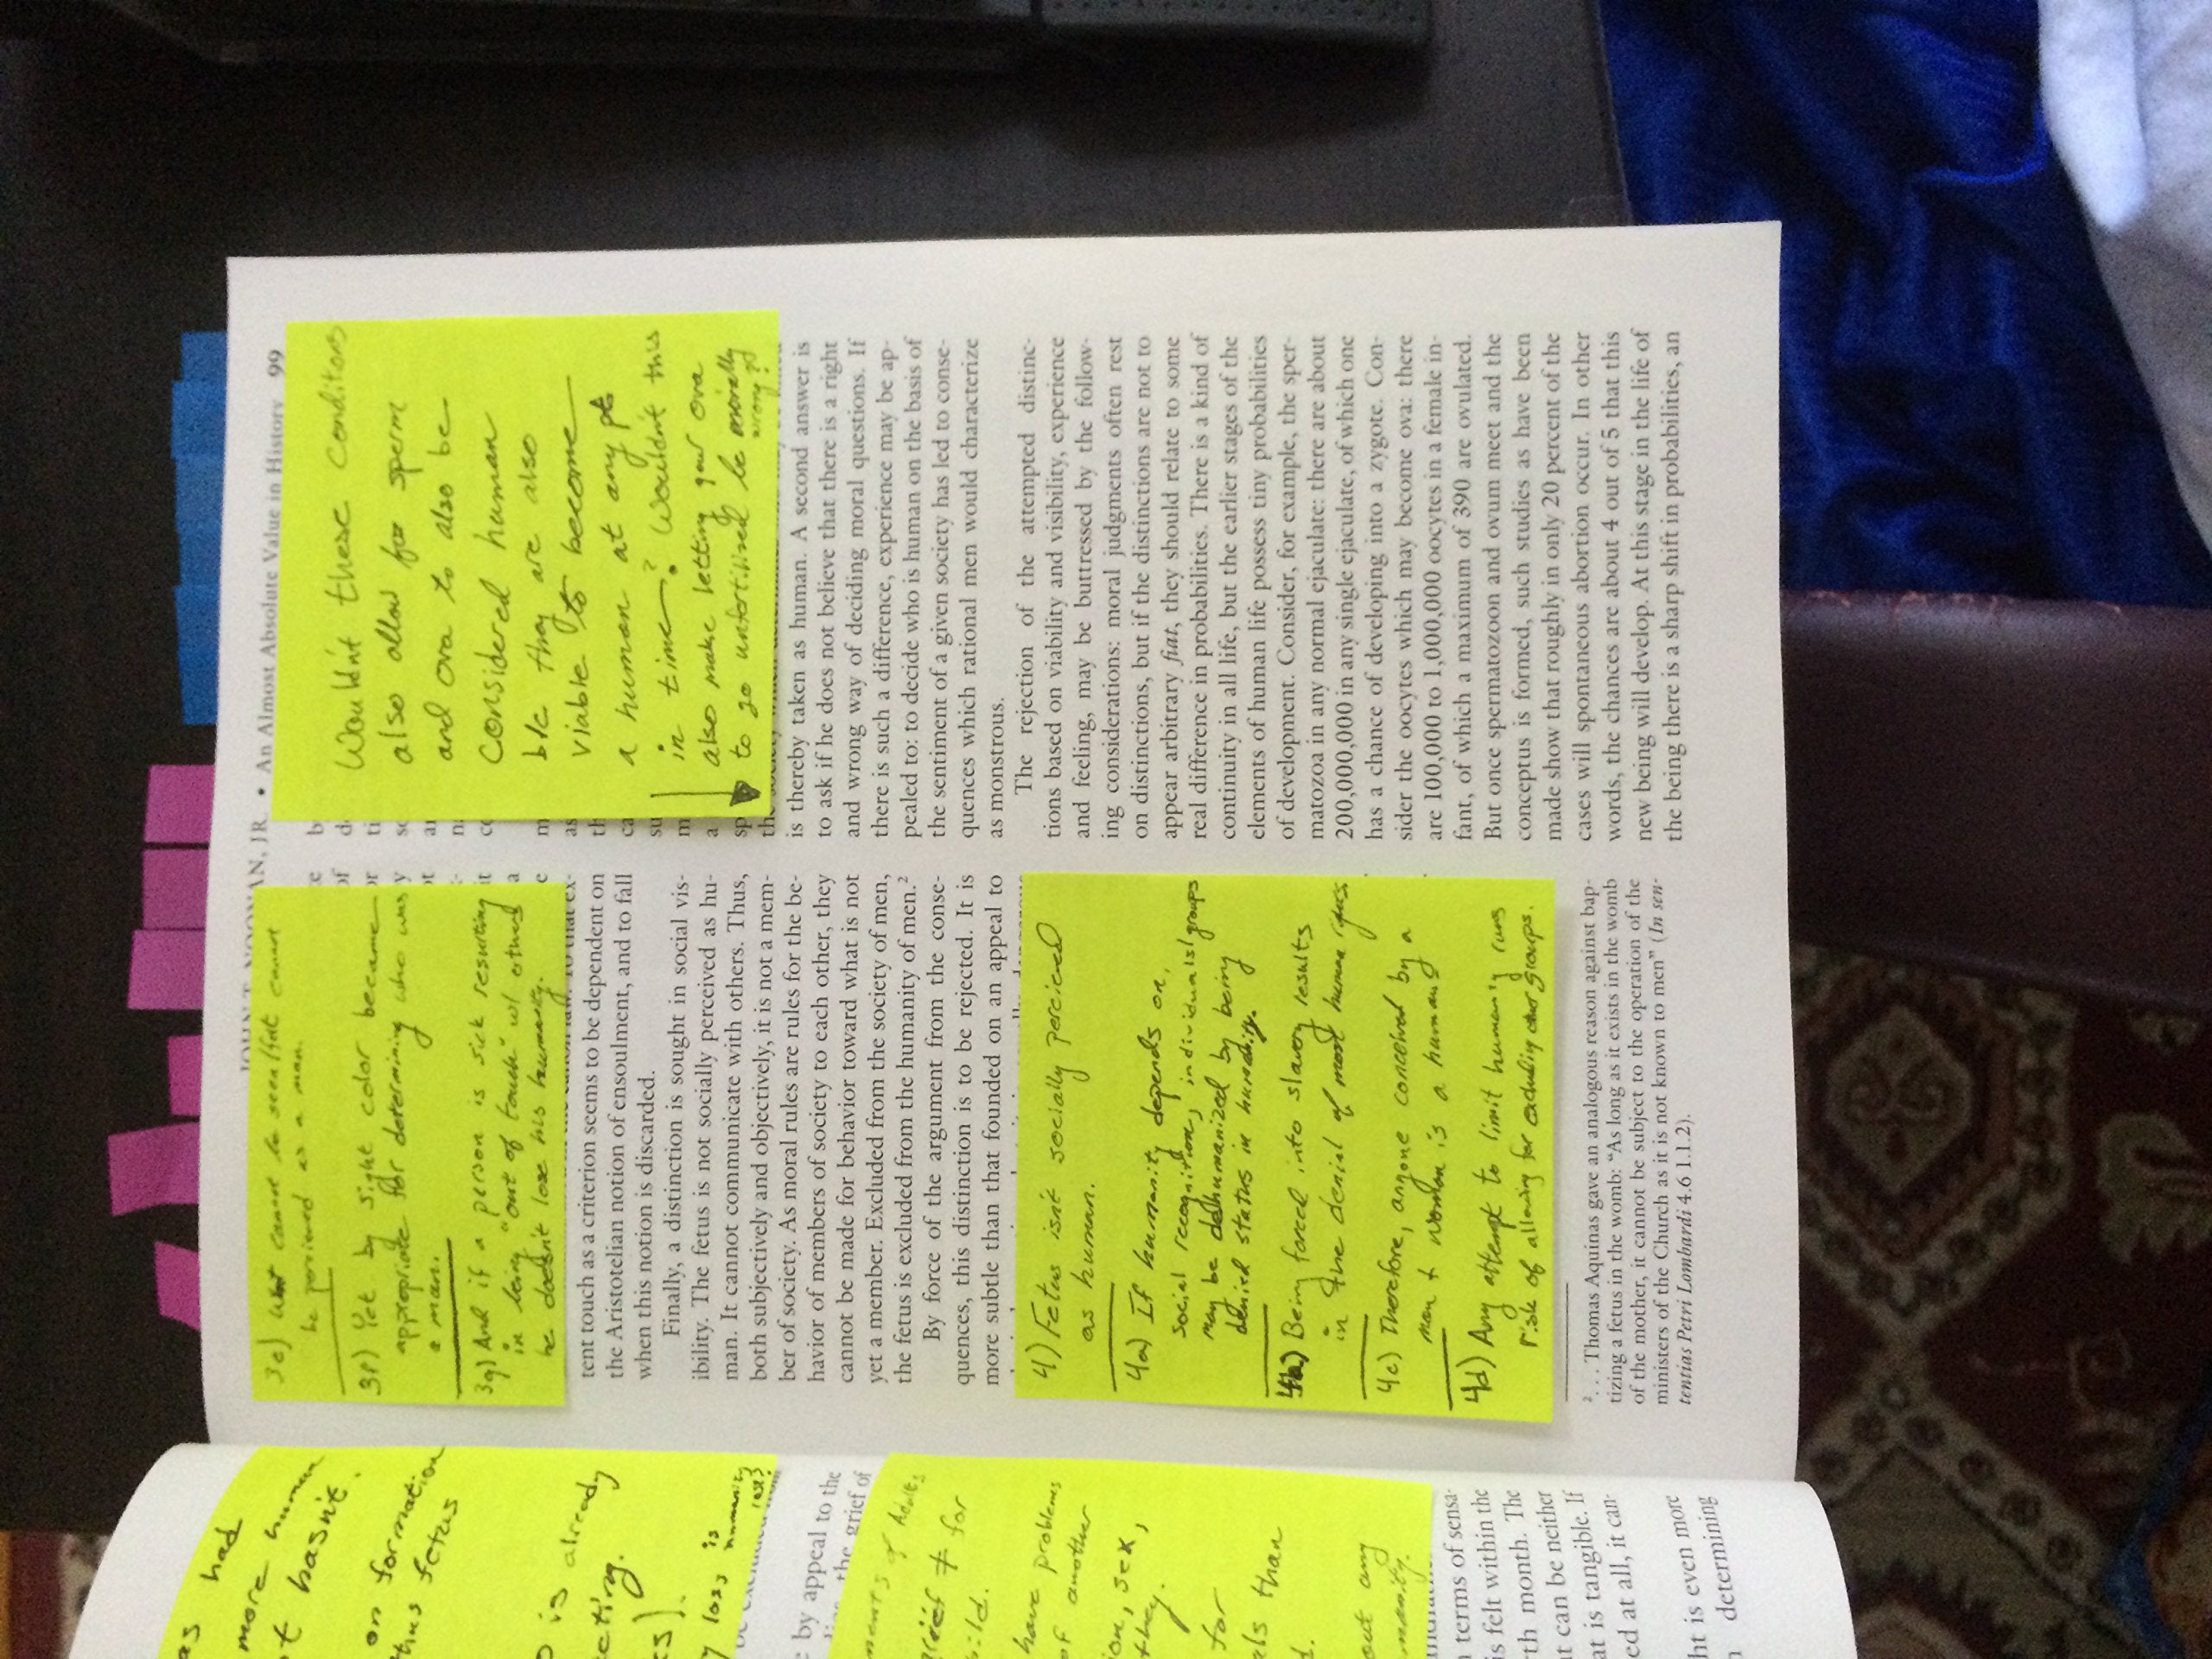 JOHN T. NOONAN, JR. • An Almost Absolute Value in History 99
3e) What cannot be seen/felt cannot
be perceived as a man.
3f) Yet by sight color became
appropiate for determining who was
a man.
3g) And if a person is sick resulting
in being "out of touch" w/ others
he doesn't lose his humanity.
tent touch as a criterion seems to be dependent on
the Aristotelian notion of ensoulment, and to fall
when this notion is discarded.
Finally, a distinction is sought in social vis-
ibility. The fetus is not socially perceived as hu-
man. It cannot communicate with others. Thus,
both subjectively and objectively, it is not a mem-
ber of society. As moral rules are rules for the be-
havior of members of society to each other, they
cannot be made for behavior toward what is not
yet a member. Excluded from the society of men,
the fetus is excluded from the humanity of men.²
By force of the argument from the conse-
quences, this distinction is to be rejected. It is
more subtle than that founded on an appeal to
4) Fetus isn't socially percieved
as human.
4a) If humanity depends on
social recognition, individuals/groups
may be dehumanized by being
denied status in humanity.
4b) Being forced into slavery results
in the denial of most human rights
4c) Therefore, anyone conceived by a
man + woman is a human
4d) Any attempt to limit humanity runs
risk of allowing for excluding other groups.
² . . . Thomas Aquinas gave an analogous reason against bap-
tizing a fetus in the womb: "As long as it exists in the womb
of the mother, it cannot be subject to the operation of the
ministers of the Church as it is not known to men" (In sen-
tentias Petri Lombardi 4.6 1.1.2).
Wouldn't these conditions
also allow for sperm
and ova to also be
considered human
b/c they are also
viable to become
a human at any pt
in time? Wouldn't this
also make letting your ova
to go unfertilised be morally
wrong?
is thereby taken as human. A second answer is
to ask if he does not believe that there is a right
and wrong way of deciding moral questions. If
there is such a difference, experience may be ap-
pealed to: to decide who is human on the basis of
the sentiment of a given society has led to conse-
quences which rational men would characterize
as monstrous.
The rejection of the attempted distinc-
tions based on viability and visibility, experience
and feeling, may be buttressed by the follow-
ing considerations: moral judgments often rest
on distinctions, but if the distinctions are not to
appear arbitrary fiat, they should relate to some
real difference in probabilities. There is a kind of
continuity in all life, but the earlier stages of the
elements of human life possess tiny probabilities
of development. Consider, for example, the sper-
matozoa in any normal ejaculate: there are about
200,000,000 in any single ejaculate, of which one
has a chance of developing into a zygote. Con-
sider the oocytes which may become ova: there
are 100,000 to 1,000,000 oocytes in a female in-
fant, of which a maximum of 390 are ovulated.
But once spermatozoon and ovum meet and the
conceptus is formed, such studies as have been
made show that roughly in only 20 percent of the
cases will spontaneous abortion occur. In other
words, the chances are about 4 out of 5 that this
new being will develop. At this stage in the life of
the being there is a sharp shift in probabilities, an
had
more human
hasn't.
on formation
thus fetus
is already
loss is
humanity
lost?
by appeal to the
the grief of
Adults
grief ≠ for
have problems
of another
sex,
they.
for
than
out any
terms of sensa-
is felt within the
month. The
it can be neither
at is tangible. If
ed at all, it can-
ht is even more
determining